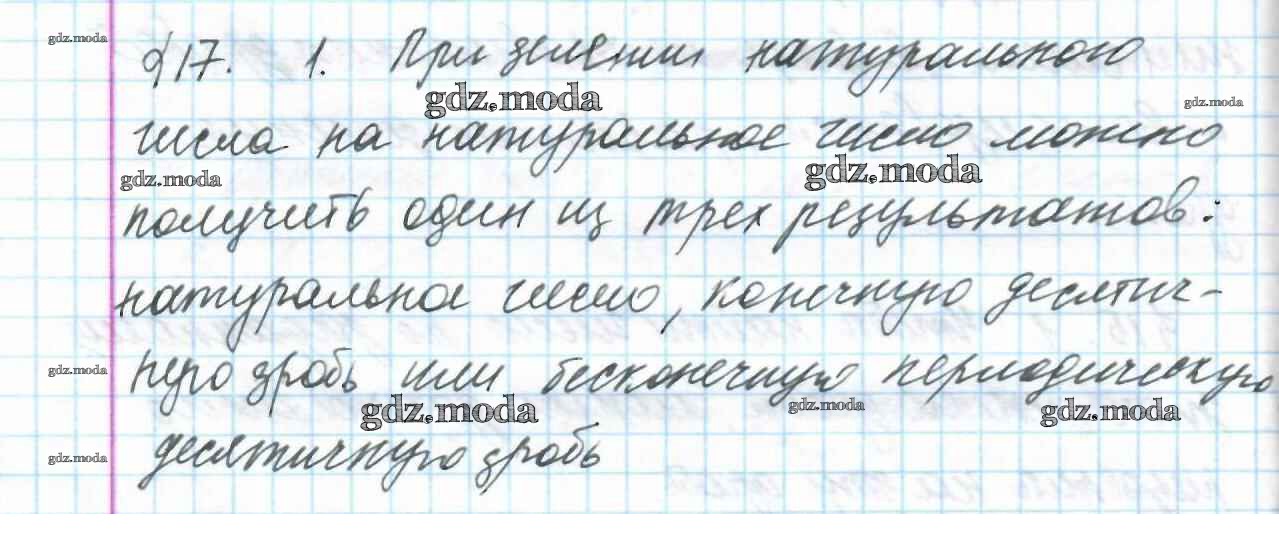 §17. 1. При делении натурального
числа на натуральное число можно
получить один из трех результатов:
натуральное число, конечную десятич-
ную дробь или бесконечную периодическую
десятичную дробь
gdz.moda
gdz.moda
gdz.moda
gdz.moda
gdz.moda
gdz.moda
gdz.moda
gdz.moda
gdz.moda
gdz.moda